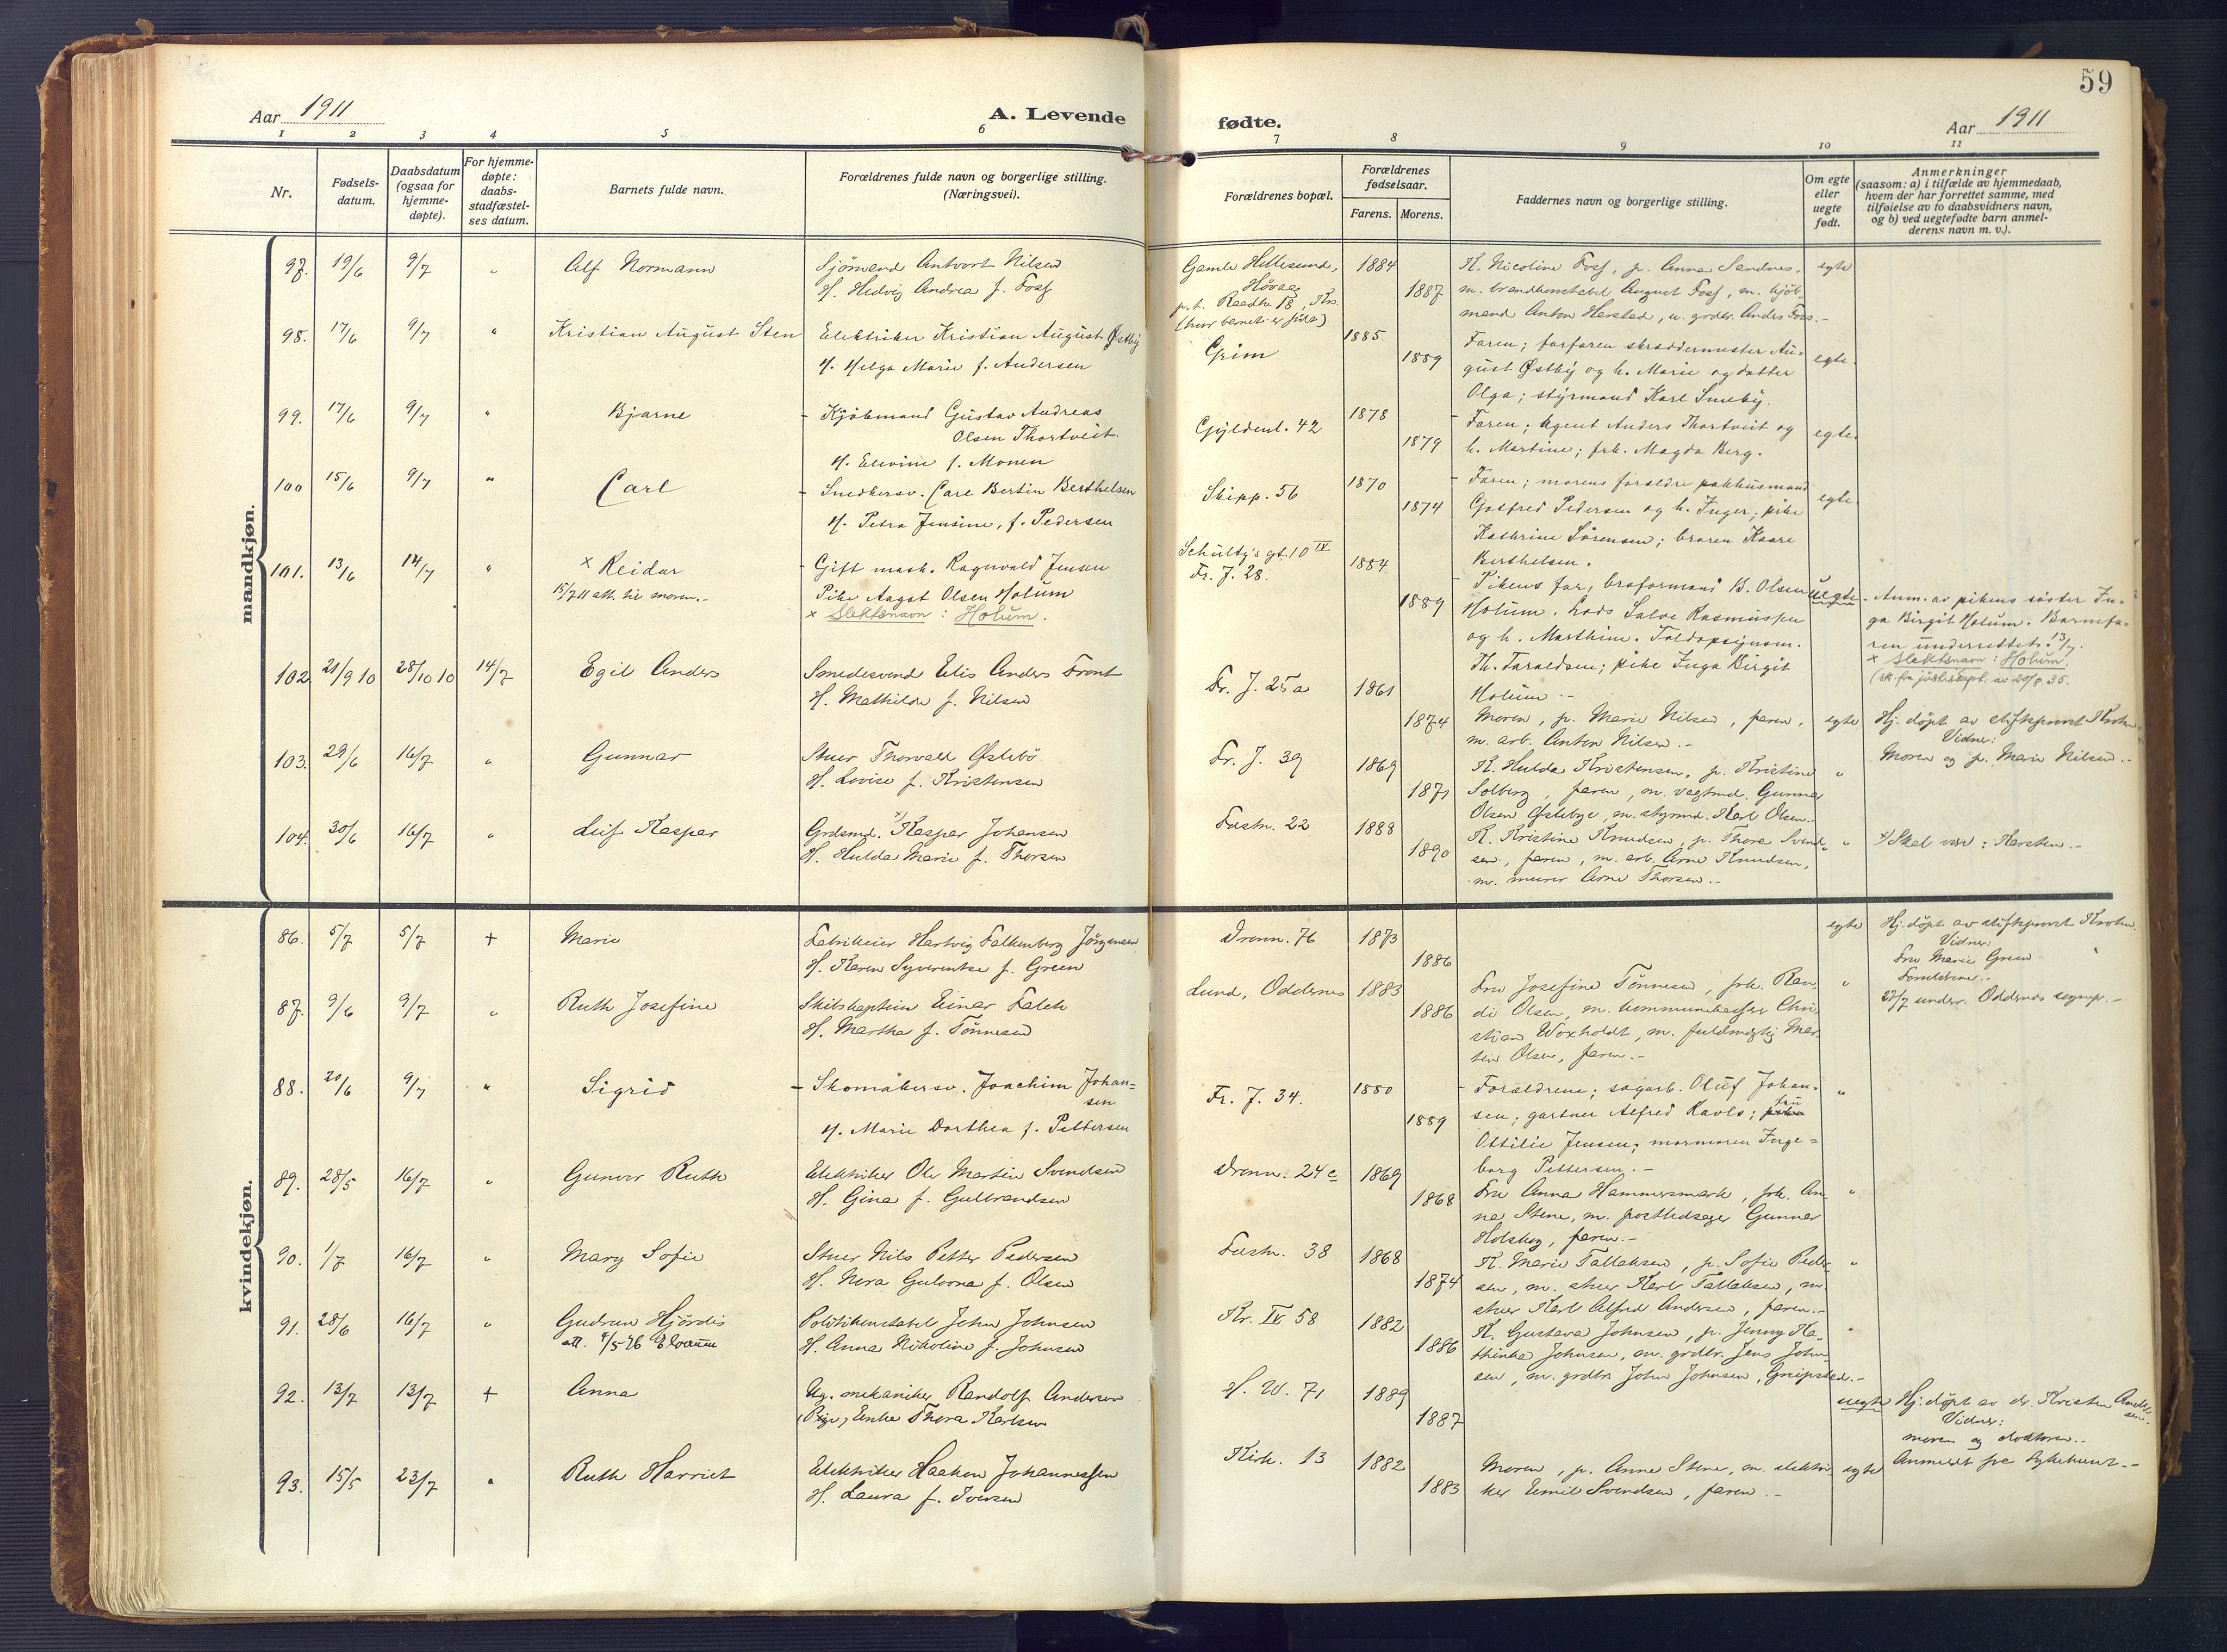 59
Aar 1911
A. Levende
fødte.
Aar 1911
1 2 3 4 5 6 7 8 9 10 11
Nr.
Fødsels-
datum.
Daabsdatum
(ogsaa for
hjemme-
døpte).
For hjemme-
døpte:
daabs-
stadfæstel-
ses datum.
Barnets fulde navn.
Forældrenes fulde navn og borgerlige stilling.
(Næringsvei).
Forældrenes bopæl.
Forældrenes
fødselsaar.
Farens. Morens.
Faddernes navn og borgerlige stilling.
Om egte
eller
uegte
født.
Anmerkninger
(saasom: a) i tilfælde av hjemmedaab,
hvem der har forrettet samme, med
tilføielse av to daabsvidners navn,
og b) ved uegtefødte barn anmel-
derens navn m. v.).
mandkjøn.
97. 19/6 9/7 " Alf Normann
Sjömand Antvort Nilsen
H. Hedvig Andrea f. Foss
Gamle Hellesund,
Høvaag
p.t. Raadh. 18, Krs.
(hvor barnet er født)
1884
1887
K. Nicoline Foss, p. Anna Sandnes,
m. brandkonstabel August Foss, m. kjöb-
mand Anton Hersted, u. grdbr. Anders Foss.-
egte
98. 17/6 9/7 " Kristian August Sten
Elektriker Kristian August Østby
H. Helga Marie f. Andersen
Grim
1885
1889
Faren; farfaren skræddermester Au-
gust Østby og h. Marie og datter
Olga; styrmand Karl Smeby.
egte.
99. 17/6 9/7 " Bjarne
- Kjöbmand Gustav Andreas
Olsen Thortveit.
H. Elevine f. Monen
Gyldenl. 42
1878
1879
- Faren; agent Anders Thortveit og
h. Martine; frk. Magda Berg.
egte.
100 15/6 9/7 " Carl
- Snedkersv. Carl Bertin Berthelsen
H. Petra Jensine, f. Pedersen
Skipp. 56
1870
1874
- Faren; morens forældre pakhusmand
Gotfred Pedersen og h. Inger; pike
Kathrine Sörensen; broren Kaare
Berthelsen.
egte.
101. 13/6 14/7 " x Reidar
15/7 11 att. til moren.-
- Gift mask. Ragnvald Jensen
Pike Aagot Olsen Holum
x Slektsnavn: Holum.
Schultz's gt. 10 IV
Fr. J. 28.
1884
1889
- Pikens far, broformand B. Olsen
Holum. Lods Salve Rasmussen
og h. Marthine. Toldopsynsm.
Th. Taraldsen; pike Inga Birgit
Holum.-
uegte.
Anm. av pikens söster In-
ga Birgit Holum. Barnefa-
ren underrettet. 13/7.
x Slektsnavn: Holum.
102. 21/9 10 28/10 10 14/7 Egil Anders
Smedesvend Elis Anders Front
H. Mathilde f. Nilsen
Fr. J. 25a
1861
1874
Moren, p. Marie Nilsen, faren,
m. arb. Anton Nilsen.-
egte
Hj. døpt av stiftsprovst Krohn.
Vidner:
Moren og p. Marie Nilsen.-
103. 29/6 16/7 " Gunnar
Stuer Thorvald Øslebö
H. Lovise f. Kristensen
Fr. J. 39
1869
1871
K. Hulda Kristensen, p. Kristine
Solberg, faren, m. vegtmd. Gunnar
Olsen Øslebye, m. styrmd. Karl Olsen.-
"
104. 30/6 16/7 " Leif Kaspar
Grdsmd. x) Kaspar Johansen
H. Hulda Marie f. Thorsen
Fæstn. 22
1888
1890
K. Kristine Knudsen, p. Thora Svend-
sen, faren, m. arb. Arne Knudsen,
m. murer Arne Thorsen.-
"
x) Skal være: Karsten.-
kvindekjøn.
86. 5/7 5/7 + Marie
Fabrikeier Hartvig Falkenberg Jörgensen
H. Karen Syverentse f. Green
Dronn. 76
1873
1886
egte
Hj. døpt av stiftsprovst Krohn.
Vidner:
Fru Marie Green
Forældrene.-
87. 9/6 9/7 " Ruth Josefine
Skibskaptein Einar Falch
H. Martha f. Tönnesen
Lund, Oddernes
1883
1886
Fru Josefine Tönnesen, frk. Ran-
di Olsen, m. kommunekasserer Chri-
stian Woxholdt, m. fuldmægtig Mar-
tin Olsen, faren.-
"
27/7 underr. Oddernes sognep.-
88. 20/6 9/7 " Sigrid
- Skomakersv. Joachim Johan-
sen
H. Marie Dorthea f. Pettersen
Fr. J. 34.
1880
1889
- Forældrene; sagarb. Oluf Johan-
sen; gartner Alfred Kavlo; fru
Ottilie Jensen; mormoren Inge-
borg Pettersen.-
"
89. 28/5 16/7 " Gunvor Ruth
Elektriker Ole Martin Svendsen
H. Gina f. Gulbrandsen
Dronn. 24c
1869
1868
Fru Anna Hammersmark, frk. An-
na Stene, m. postledsager Gunnar
Holskog, faren.-
"
90. 1/7 16/7 " Mary Sofie
Stuer Nils Petter Pedersen
H. Nora Gulovna f. Olsen
Fæstn. 38
1868
1874
K. Marie Tallaksen, p. Sofie Peder-
sen, m. stuer Karl Tallaksen, m.
stuer Karl Alfred Andersen, faren.-
"
91. 28/6 16/7 " Gudrun Hjördis
att. 4/5-26
Politikonstabel John Johnsen
H. Anna Nikoline f. Johnsen
Kr. IV 58
1882
1886
K. Gustava Johnsen, p. Jenny Ka-
thinka Johnsen, m. grdbr. Jens John-
sen, m. grdbr. John Johnsen, Gripstad.-
"
92. 13/7 13/7 + Anna
Ug. mekaniker Randolf Andersen
(Pige) Enke Thora Karlsen
H. W. 71
1889
1887
uegte
Hj. døpt av dr. Kristen Ander-
sen.
Vidner:
moren og doktoren.-
93. 15/5 23/7 " Ruth Harriet
Elektriker Haakon Johannessen
H. Laura f. Iversen
Kirk. 13
1882
1883
Moren, p. Anna Stene, m. elektri-
ker Emil Svendsen, faren.-
egte
Anmeldt fra Sykehuset.-